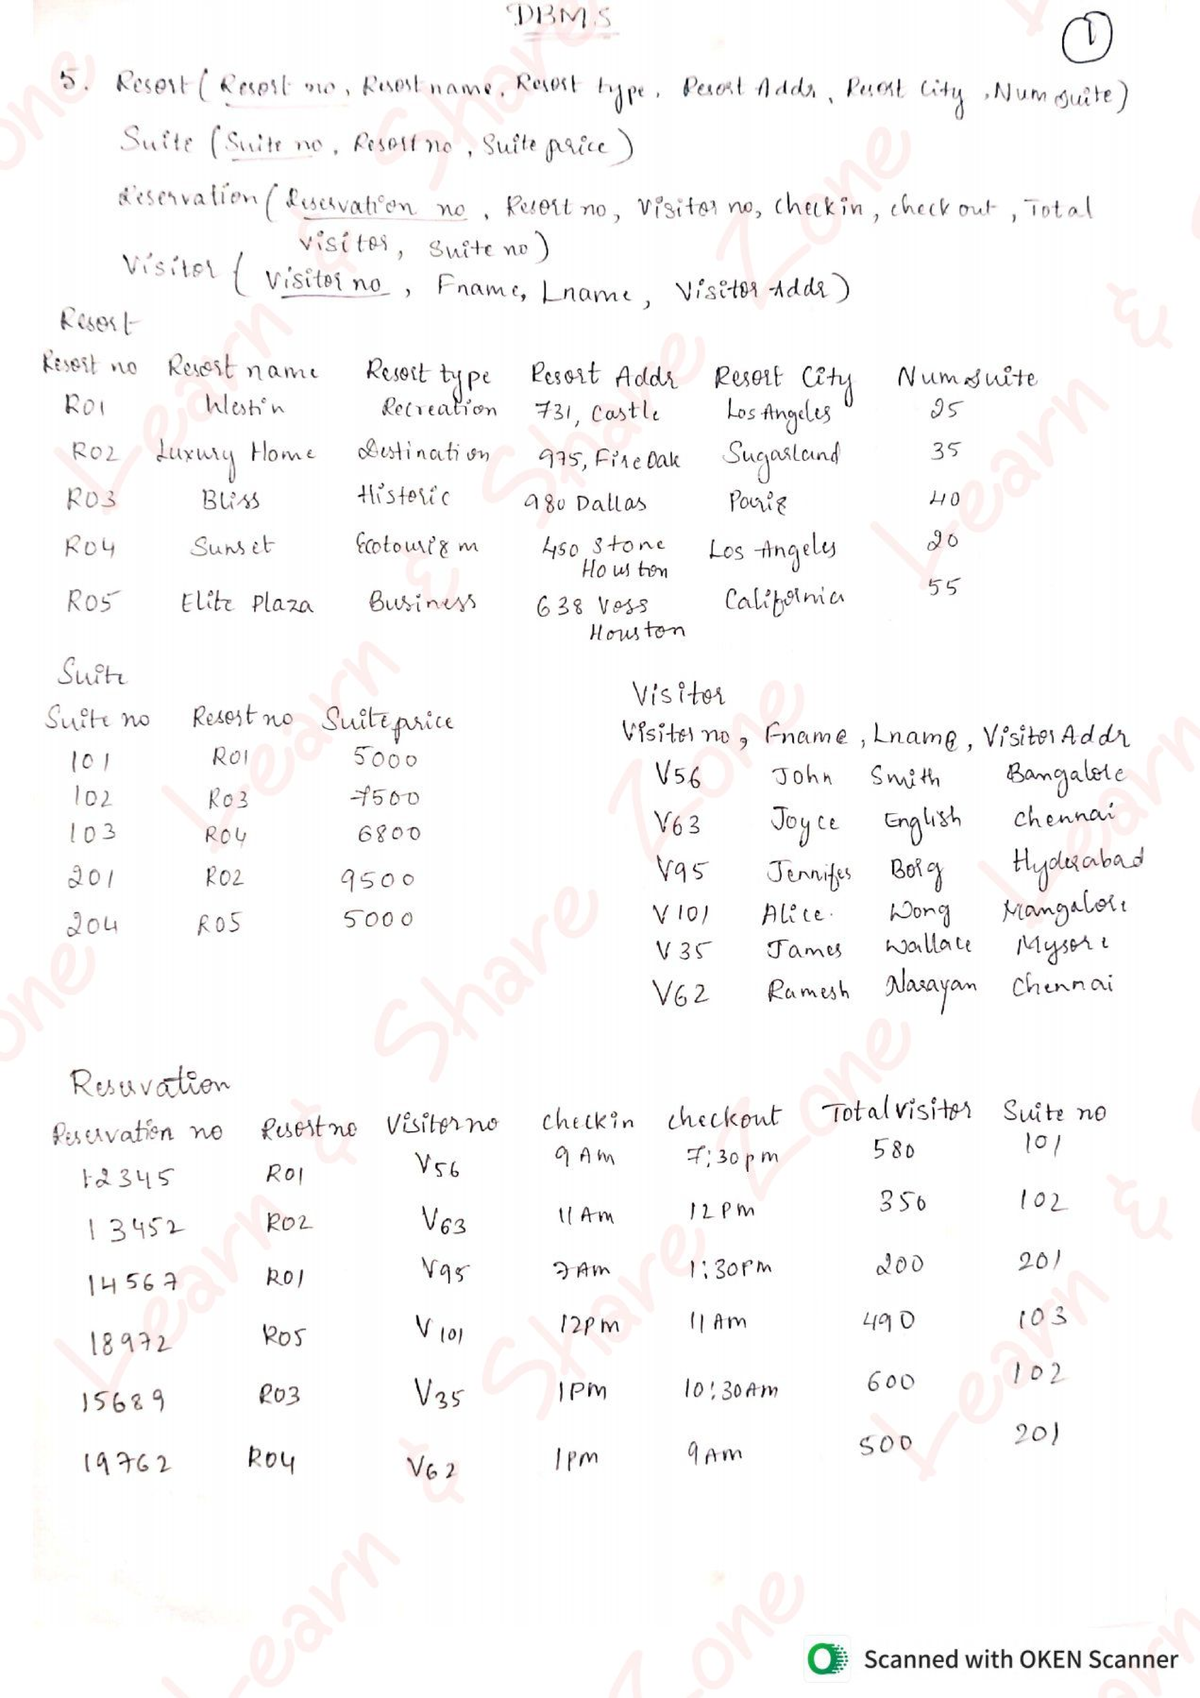 DBMS
1
5. Resort ( Resort no, Resort name, Resort type, Resort Addr, Resort City, Numsuite)
Suite (Suite no, Resort no, Suite price)
Reservation ( Reservation no, Resort no, Visitor no, checkin, check out, Total
visitor, Suite no)
Visitor ( Visitor no, Fname, Lname, Visitor Addr)
Resort
Resort no Resort name Resort type Resort Addr Resort City Numsuite
R01 Westin Recreation 731, Castle Los Angeles 25
R02 Luxury Home Destination 975, Fire Oak Sugarland 35
R03 Bliss Historic 980 Dallas Paris 40
R04 Sunset Ecotourism 450 Stone Los Angeles 20
Houston
R05 Elite Plaza Business 638 Voss California 55
Houston
Suite
Suite no Resort no Suite price
101 R01 5000
102 R03 7500
103 R04 6800
201 R02 9500
204 R05 5000
Visitor
Visitor no, Fname, Lname, Visitor Addr
V56 John Smith Bangalore
V63 Joyce English Chennai
V95 Jennifer Borg Hyderabad
V101 Alice. Wong Mangalore
V35 James Wallace Mysore
V62 Ramesh Narayan Chennai
Reservation
Reservation no Resort no Visitor no checkin checkout Total visitor Suite no
12345 R01 V56 9 AM 7:30pm 580 101
13452 R02 V63 11 AM 12 PM 350 102
14567 R01 V95 7 AM 1:30PM 200 201
18972 R05 V101 12pm 11 AM 490 103
15689 R03 V35 1PM 10:30AM 600 102
19762 R04 V62 1pm 9 AM 500 201
Learn & Share Zone
Scanned with OKEN Scanner